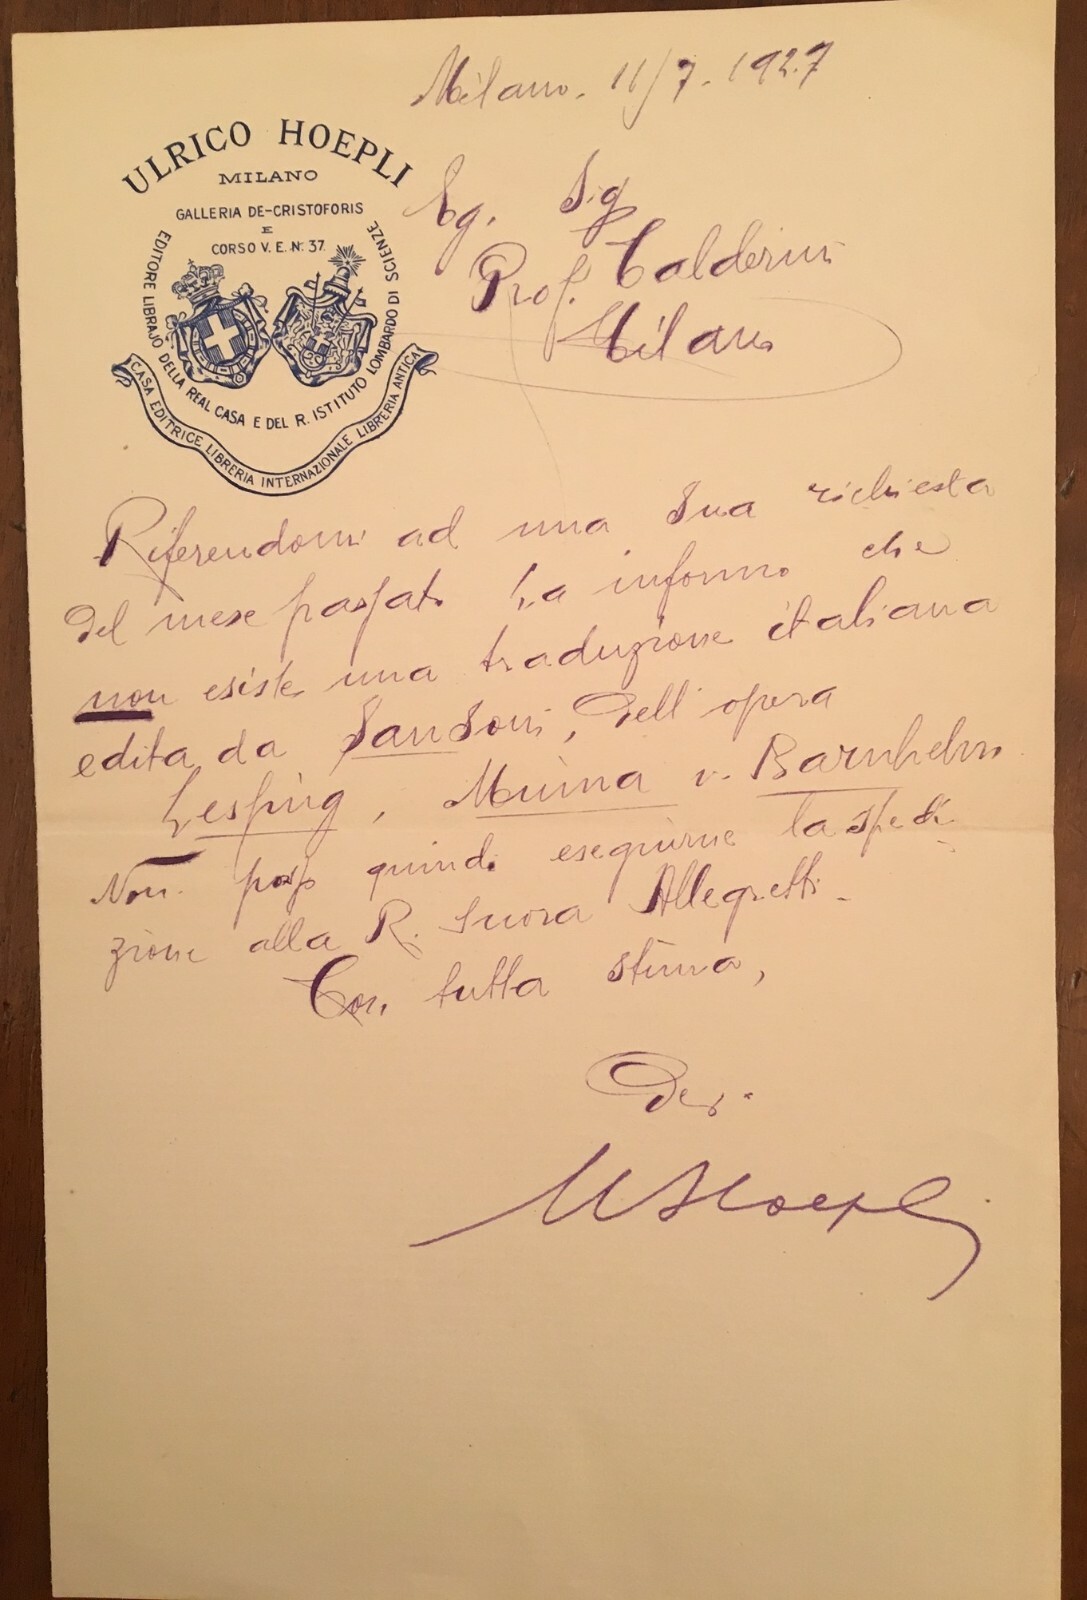 Milano. 11/7. 1927
ULRICO HOEPLI
MILANO
GALLERIA DE-CRISTOFORIS
E
CORSO V. E. N.° 37.
EDITORE LIBRAJO DELLA REAL CASA E DEL R. ISTITUTO LOMBARDO DI SCIENZE
CASA EDITRICE LIBRERIA INTERNAZIONALE LIBRERIA ANTICA
Eg. Sig
Prof. Calderini
Milano
Riferendomi ad una Sua richiesta
del mese passato La informo che
non esiste una traduzione italiana
edita da Sansoni, dell'opera
Lessing, Minna v. Barnhelm
Non posso quindi eseguirne la spedi-
zione alla R. Suora Allegretti.
Con tutta stima,
Dev.
U Hoepli